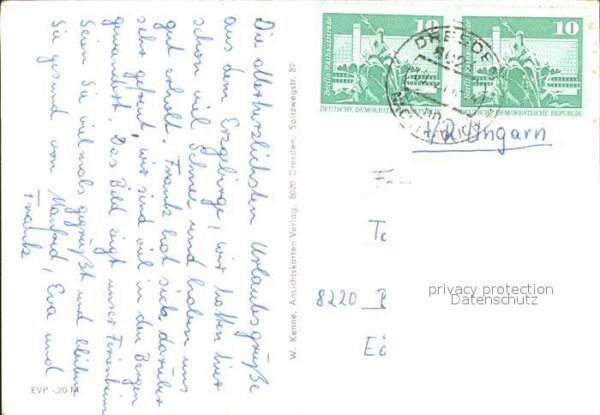 Die allerherzlichsten Urlaubsgrüße
aus dem Erzgebirge! Wir hatten hier
schon viel Schnee und haben uns
gut erholt. Frank hat sich darüber
sehr gefreut, wir sind viel in den Bergen
gewandert. Das Bild zeigt unser Ferienheim
Seien Sie vielmals gegrüßt und bleiben
Sie gesund von Manfred, Eva und
Frank!
EVP -,20 M
W. Kenne, Ansichtskarten-Verlag, 8020 Dresden, Spitzwegstr. 52
10
Berlin, Rathausstraße
DEUTSCHE DEMOKRATISCHE REPUBLIK
10
Berlin, Rathausstraße
DEUTSCHE DEMOKRATISCHE REPUBLIK
DRESDEN
Ungarn
8220
privacy protection
Datenschutz